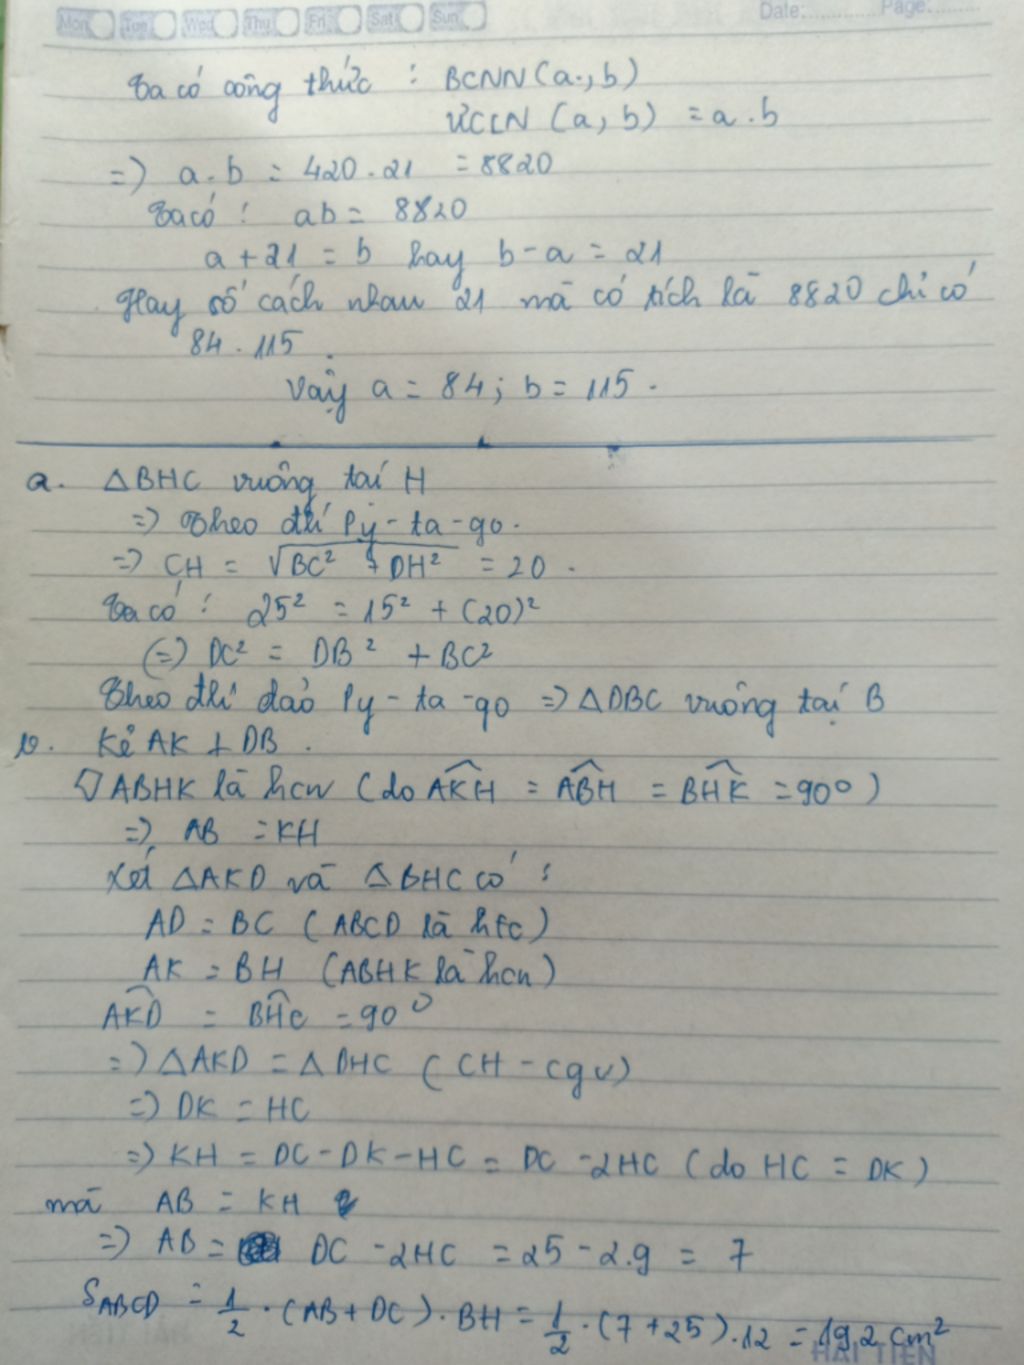 Mon Tue Wed Thu Fri Sat Sun Date: Page:
Ta có công thức : BCNN (a, b)
ƯCLN (a, b) = a . b
=> a . b = 420 . 21 = 8820
Ta có : ab = 8820
a + 21 = b hay b - a = 21
Hay số cách nhau 21 mà có tích là 8820 chỉ có
84 . 115 .
Vậy a = 84 ; b = 115 .
a. △BHC vuông tại H
=> Theo đlí Py - ta - go .
=> CH = √BC² + DH² = 20 .
Ta có : 25² = 15² + (20)²
(=) DC² = DB² + BC²
Theo đlí đảo Py - ta - go => △DBC vuông tại B
b. Kẻ AK ⊥ DB .
ABHK là hcn (do AKH = ABH = BHK = 90°)
=> AB = KH
Xét △AKD và △BHC có :
AD = BC (ABCD là htc)
AK = BH (ABHK là hcn)
AKD = BHC = 90°
=> △AKD = △DHC (CH - cgv)
=> DK = HC
=> KH = DC - DK - HC = DC - 2HC (do HC = DK)
mà AB = KH
=> AB = DC - 2HC = 25 - 2.9 = 7
S_ABCD = 1/2 . (AB + DC) . BH = 1/2 . (7 + 25) . 12 = 192 cm²
HẢI TIẾN